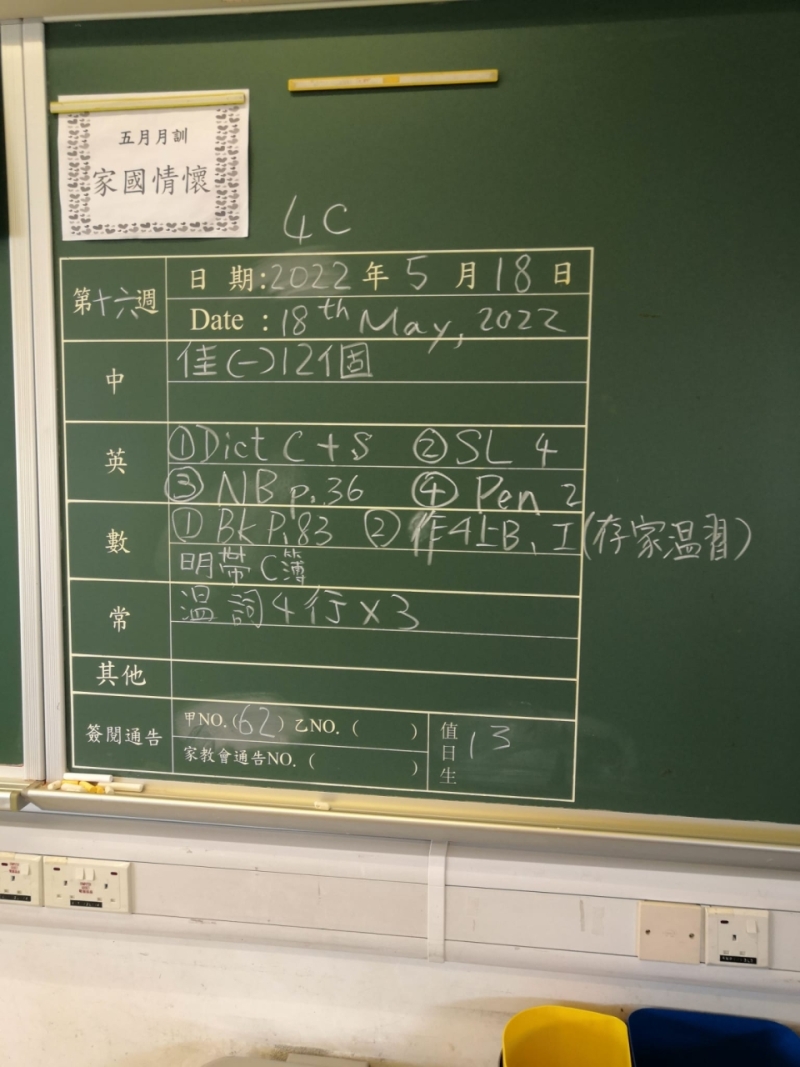 五月月訓
家國情懷
4C
第十六週
日 期:2022年5月18日
Date : 18th May, 2022
中
佳(一)12個
英
①Dict C+S ②SL 4
③NB p.36 ④Pen 2
數
①BK P.83 ②作4上B、I(存家温習)
明帶C簿
常
温詞4行x3
其他
簽閱通告
甲NO.(62)乙NO.( )
家教會通告NO.( )
值日生
13